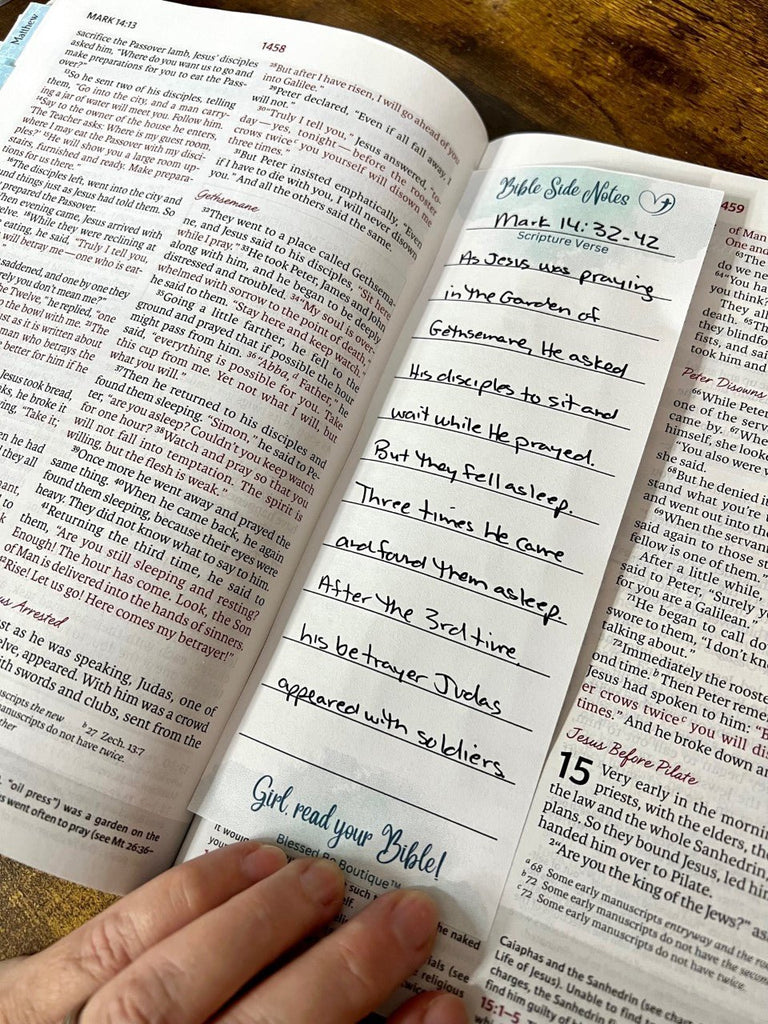 Matthew
MARK 14:13
1458
sacrifice the Passover lamb, Jesus' disciples
asked him, "Where do you want us to go and
make preparations for you to eat the Pass-
over?"
13So he sent two of his disciples, telling
them, "Go into the city, and a man carry-
ing a jar of water will meet you. Follow him.
14Say to the owner of the house he enters,
'The Teacher asks: Where is my guest room,
where I may eat the Passover with my disci-
ples?' 15He will show you a large room up-
stairs, furnished and ready. Make prepara-
tions for us there."
16The disciples left, went into the city and
und things just as Jesus had told them. So
prepared the Passover.
When evening came, Jesus arrived with
elve. 18While they were reclining at
eating, he said, "Truly I tell you,
will betray me—one who is eat-
saddened, and one by one they
rely you don't mean me?"
he Twelve," he replied, "one
to the bowl with me. 21The
ust as it is written about
man who betrays the
better for him if he
Jesus took bread,
ks, he broke it
ying, "Take it;
en he had
d they all
28But after I have risen, I will go ahead of you
into Galilee."
29Peter declared, "Even if all fall away, I
will not."
30"Truly I tell you," Jesus answered, "to-
day—yes, tonight—before the rooster
crows twice you yourself will disown me
three times."
31But Peter insisted emphatically, "Even
if I have to die with you, I will never disown
you." And all the others said the same.
Gethsemane
32They went to a place called Gethsema-
ne, and Jesus said to his disciples, "Sit here
while I pray." 33He took Peter, James and John
along with him, and he began to be deeply
distressed and troubled. 34"My soul is over-
whelmed with sorrow to the point of death,"
he said to them. "Stay here and keep watch."
35Going a little farther, he fell to the
ground and prayed that if possible the hour
might pass from him. 36"Abba, Father," he
said, "everything is possible for you. Take
this cup from me. Yet not what I will, but
what you will."
37Then he returned to his disciples and
found them sleeping. "Simon," he said to Pe-
ter, "are you asleep? Couldn't you keep watch
for one hour? 38Watch and pray so that you
will not fall into temptation. The spirit is
willing, but the flesh is weak."
39Once more he went away and prayed the
same thing. 40When he came back, he again
found them sleeping, because their eyes were
heavy. They did not know what to say to him.
41Returning the third time, he said to
them, "Are you still sleeping and resting?
Enough! The hour has come. Look, the Son
of Man is delivered into the hands of sinners.
42Rise! Let us go! Here comes my betrayer!"
us Arrested
ust as he was speaking, Judas, one of
elve, appeared. With him was a crowd
ith swords and clubs, sent from the
uscripts the new b 27 Zech. 13:7
manuscripts do not have twice.
"oil press") was a garden on the
s went often to pray (see Mt 26:36–
Bible Side Notes
Mark 14:32-42
Scripture Verse
As Jesus was praying
in the Garden of
Gethsemane, He asked
His disciples to sit and
wait while He prayed.
But they fell asleep.
Three times He came
and found them asleep.
After the 3rd time,
his betrayer Judas
appeared with soldiers
Girl, read your Bible!
Blessed Be Boutique™
459
of Man
One and
63The
do we ne
64"You ha
you think?
They all
death. 65Th
they blindfo
fists, and sai
took him and
Peter Disowns
66While Peter
one of the serva
came by. 67When
himself, she looke
"You also were w
she said.
68But he denied it
stand what you're
and went out into th
69When the servant
said again to those st
fellow is one of them."
After a little while,
said to Peter, "Surely yo
for you are a Galilean."
71He began to call do
swore to them, "I don't kno
talking about."
72Immediately the rooste
ond time. b Then Peter reme
Jesus had spoken to him: "B
er crows twice c you will dis
times." And he broke down an
Jesus Before Pilate
15 Very early in the mornin
priests, with the elders, the
the law and the whole Sanhedrin,
plans. So they bound Jesus, led him
handed him over to Pilate.
2"Are you the king of the Jews?" as
a 68 Some early manuscripts entryway and the roo
b 72 Some early manuscripts do not have the second
c 72 Some early manuscripts do not have twice.
Caiaphas and the Sanhedrin (see char
Life of Jesus). Unable to find t
charges, the Sanhedrin
find him guilty of
15:1–5